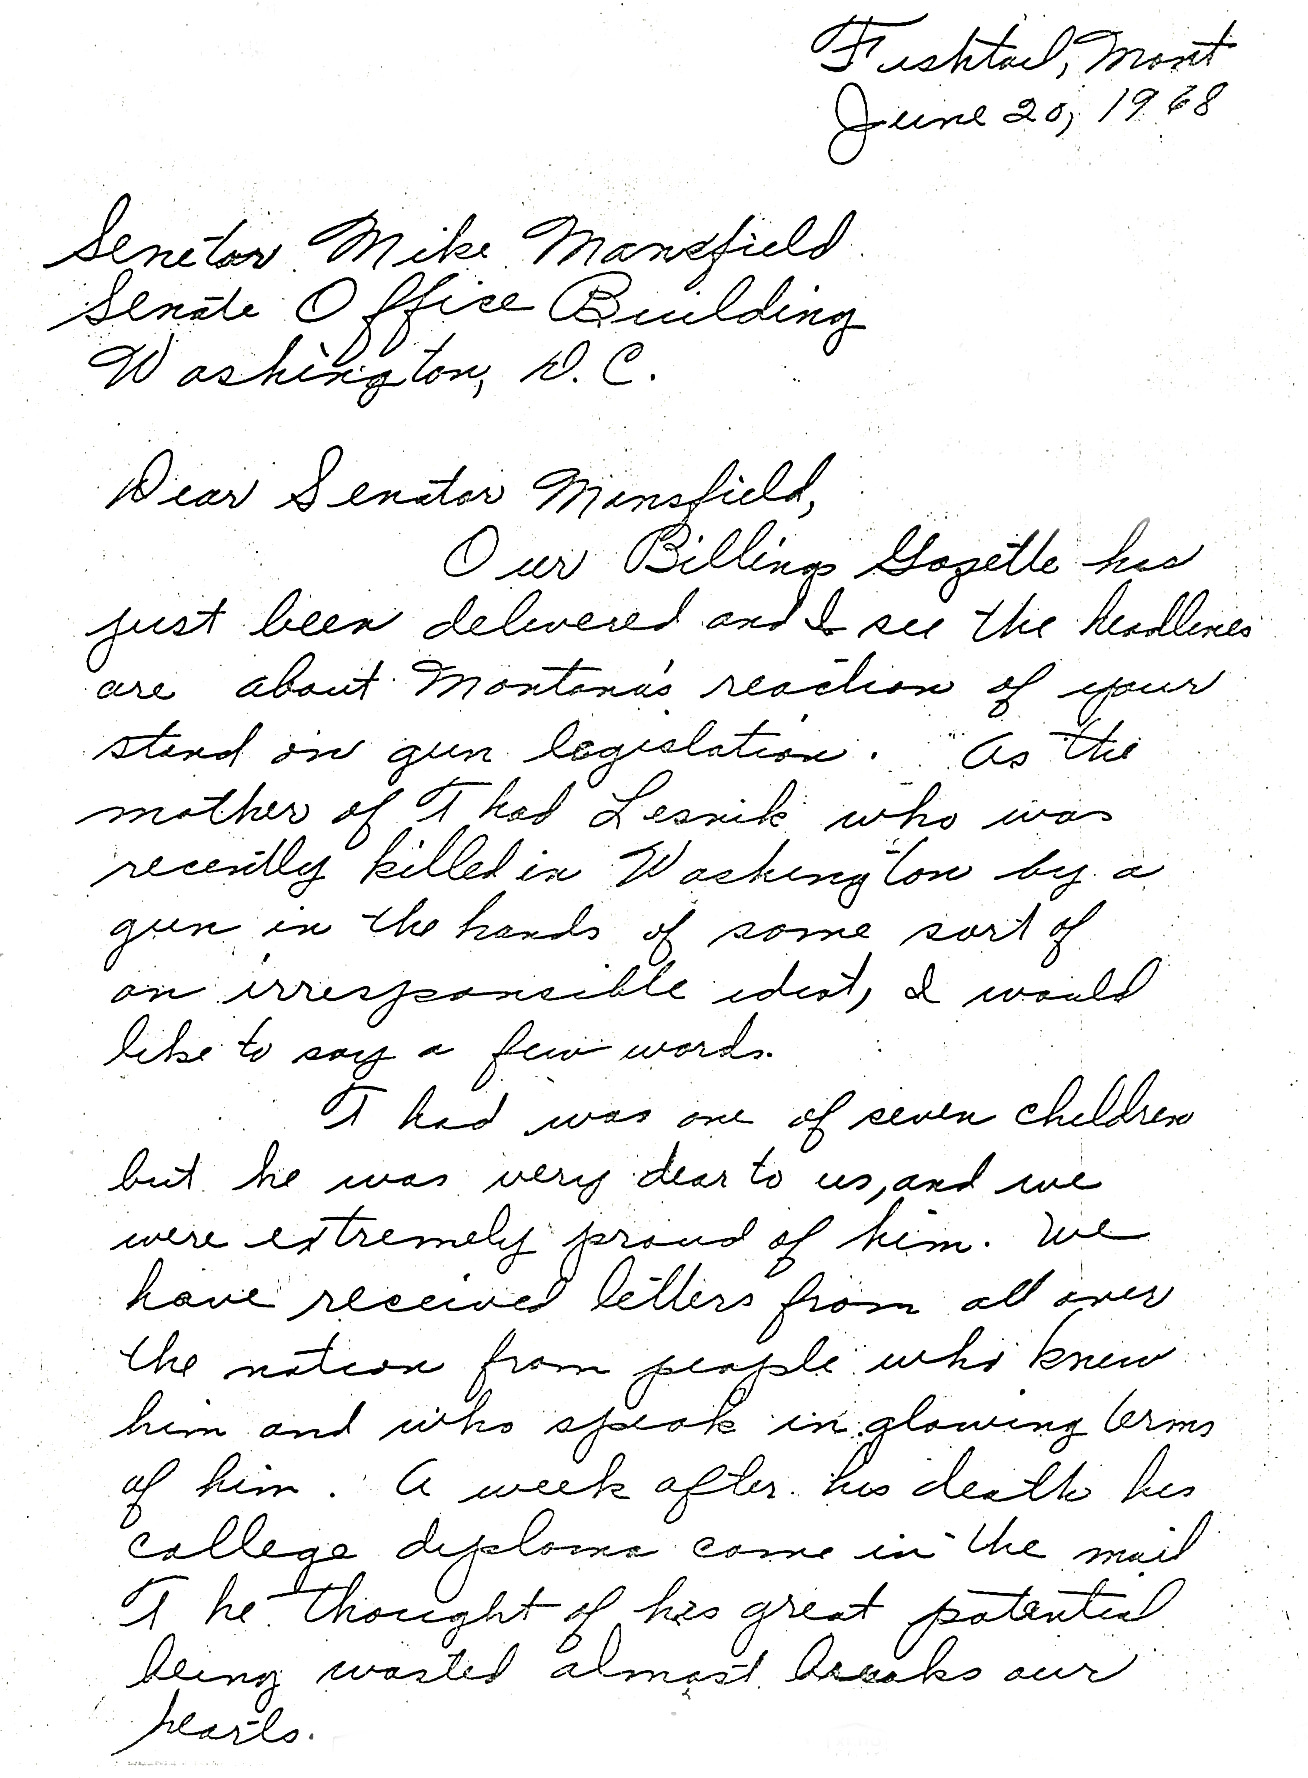 Fishtail, Mont
June 20, 1968
Senator Mike Mansfield
Senate Office Building
Washington, D.C.
Dear Senator Mansfield,
Our Billings Gazette has
just been delivered and I see the headlines
are about Montana's reaction of your
stand on gun legislation. As the
mother of Thad Lesnik who was
recently killed in Washington by a
gun in the hands of some sort of
an irresponsible idiot, I would
like to say a few words.
Thad was one of seven children
but he was very dear to us, and we
were extremely proud of him. We
have received letters from all over
the nation from people who knew
him and who speak in glowing terms
of him. A week after his death his
college diploma came in the mail
The thought of his great potential
being wasted almost breaks our
hearts.